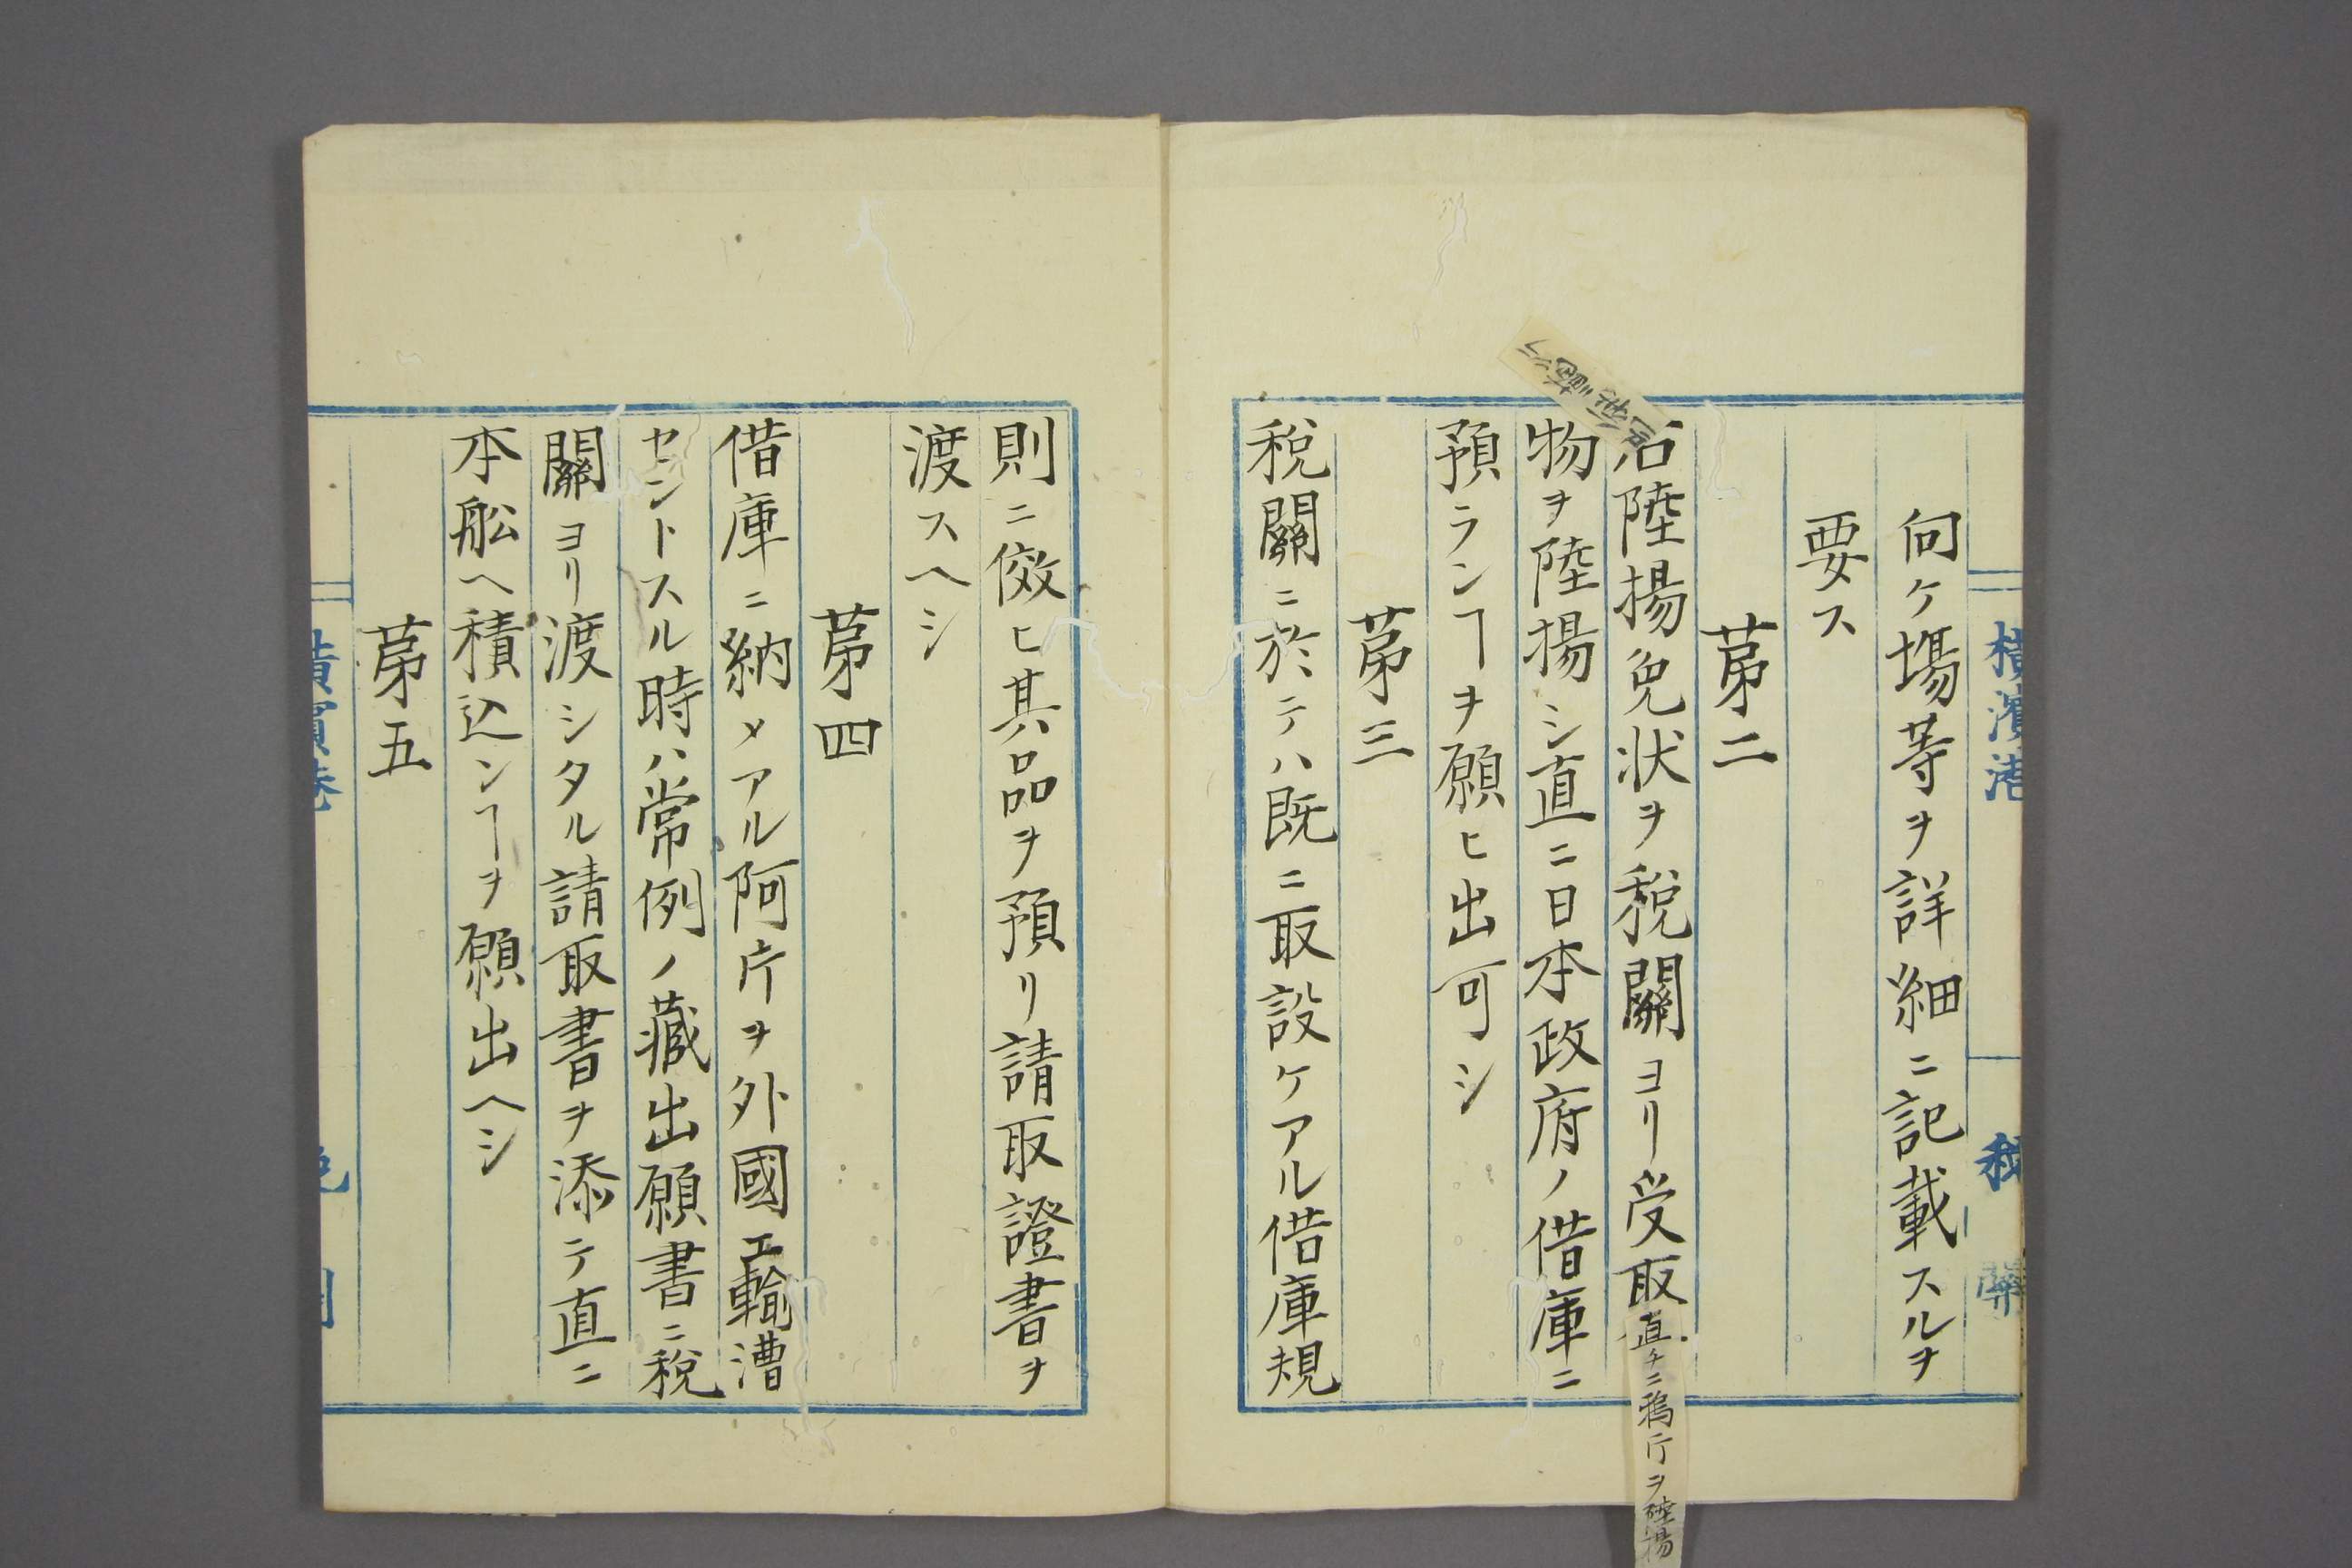 横濱港 税關
向ケ塲等ヲ詳細ニ記載スルヲ
要ス
苐二
右陸揚免状ヲ税關ヨリ受取直チニ鴉片ヲ陸揚
物ヲ陸揚シ直ニ日本政府ノ借庫ニ
預ランヿヲ願ヒ出可シ
苐三
税關ニ於テハ既ニ取設ケアル借庫規
則ニ傚ヒ其品ヲ預リ請取證書ヲ
渡スヘシ
苐四
借庫ニ納メアル阿片ヲ外國エ輸漕
セントスル時ハ常例ノ藏出願書ニ税
關ヨリ渡シタル請取書ヲ添テ直ニ
本舩ヘ積込ンヿヲ願出ヘシ
苐五
横濱港